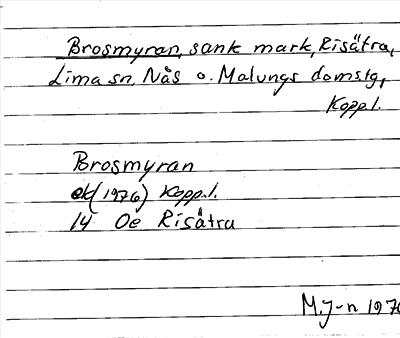 Brosmyran, sank mark, Risätra,
Lima sn, Nås o. Malungs domstg,
Kopp.l.
Brosmyran
ek (1976) Kopp.l.
14 Oe Risätra
M.J-n 1976